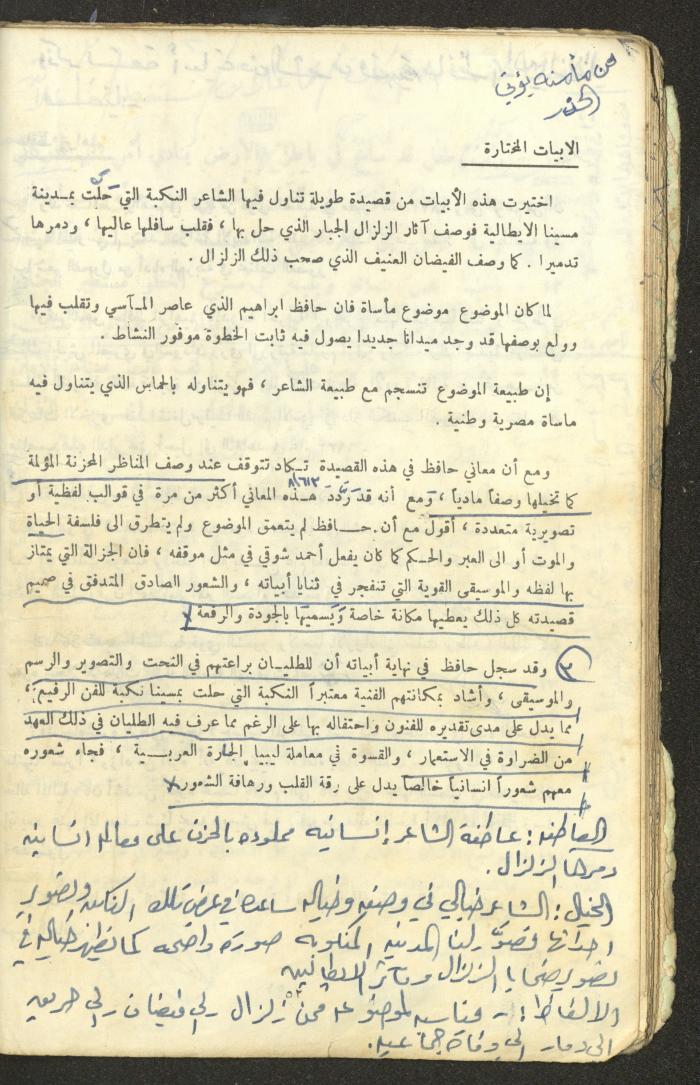 من مأمنه يؤتى
الحذر
الابيات المختارة
اختيرت هذه الأبيات من قصيدة طويلة تناول فيها الشاعر النكبة التي حلّت بمدينة
مسينا الايطالية فوصف آثار الزلزال الجبار الذي حل بها ، فقلب سافلها عاليها ، ودمرها
تدميرا . كما وصف الفيضان العنيف الذي صحب ذلك الزلزال .
لما كان الموضوع موضوع مأساة فان حافظ ابراهيم الذي عاصر المآسي وتقلب فيها
وولع بوصفها قد وجد ميدانا جديدا يصول فيه ثابت الخطوة موفور النشاط .
إن طبيعة الموضوع تنسجم مع طبيعة الشاعر ، فهو يتناوله بالحماس الذي يتناول فيه
مأساة مصرية وطنية .
ومع أن معاني حافظ في هذه القصيدة تكاد تتوقف عند وصف المناظر المحزنة المؤلمة
كما تخيلها وصفاً مادياً ، ومع أنه قد رَدَّدَ هذه المعاني أكثر من مرة في قوالب لفظية أو
تصويرية متعددة ، أقول مع أن حافظ لم يتعمق الموضوع ولم يتطرق الى فلسفة الحياة
والموت أو الى العبر والحكم كما كان يفعل أحمد شوقي في مثل موقفه ، فان الجزالة التي يمتاز
بها لفظه والموسيقى القوية التي تنفجر في ثنايا أبياته ، والشعور الصادق المتدفق في صميم
قصيدته كل ذلك يعطيها مكانة خاصة وَيَسميَها بالجودة والرفعة
٣ وقد سجل حافظ في نهاية أبياته أن للطليان براعتهم في النحت والتصوير والرسم
والموسيقى ، وأشاد بمكانتهم الفنية معتبراً النكبة التي حلت بمسينا نكبة للفن الرفيع ،
مما يدل على مدى تقديره للفنون واحتفاله بها على الرغم مما عرف فيه الطليان في ذلك العهد
من الضراوة في الاستعمار ، والقسوة في معاملة ليبيا الجارة العربية ، فجاء شعوره
معهم شعوراً انسانياً خالصاً يدل على رقة القلب ورهافة الشعور
العاطفة : عاطفة الشاعر إنسانية مملوءة بالحزن على معالم انسانية
دمرها الزلزال .
الخيال : الشاعر خيالي في وصفه وخياله ساعده في عرض تلك النكبة وتصوير
احداثها فصوّر لنا المدينة المنكوبة صورة واضحة كما تظهر خياله في
تصوير ضحايا الزلزال ومآثر الايطاليين
الالفاظ : مناسبة لموضوعه فمن زلزال الى فيضان الى حريق
الى دمار الى وفاة جماعية .